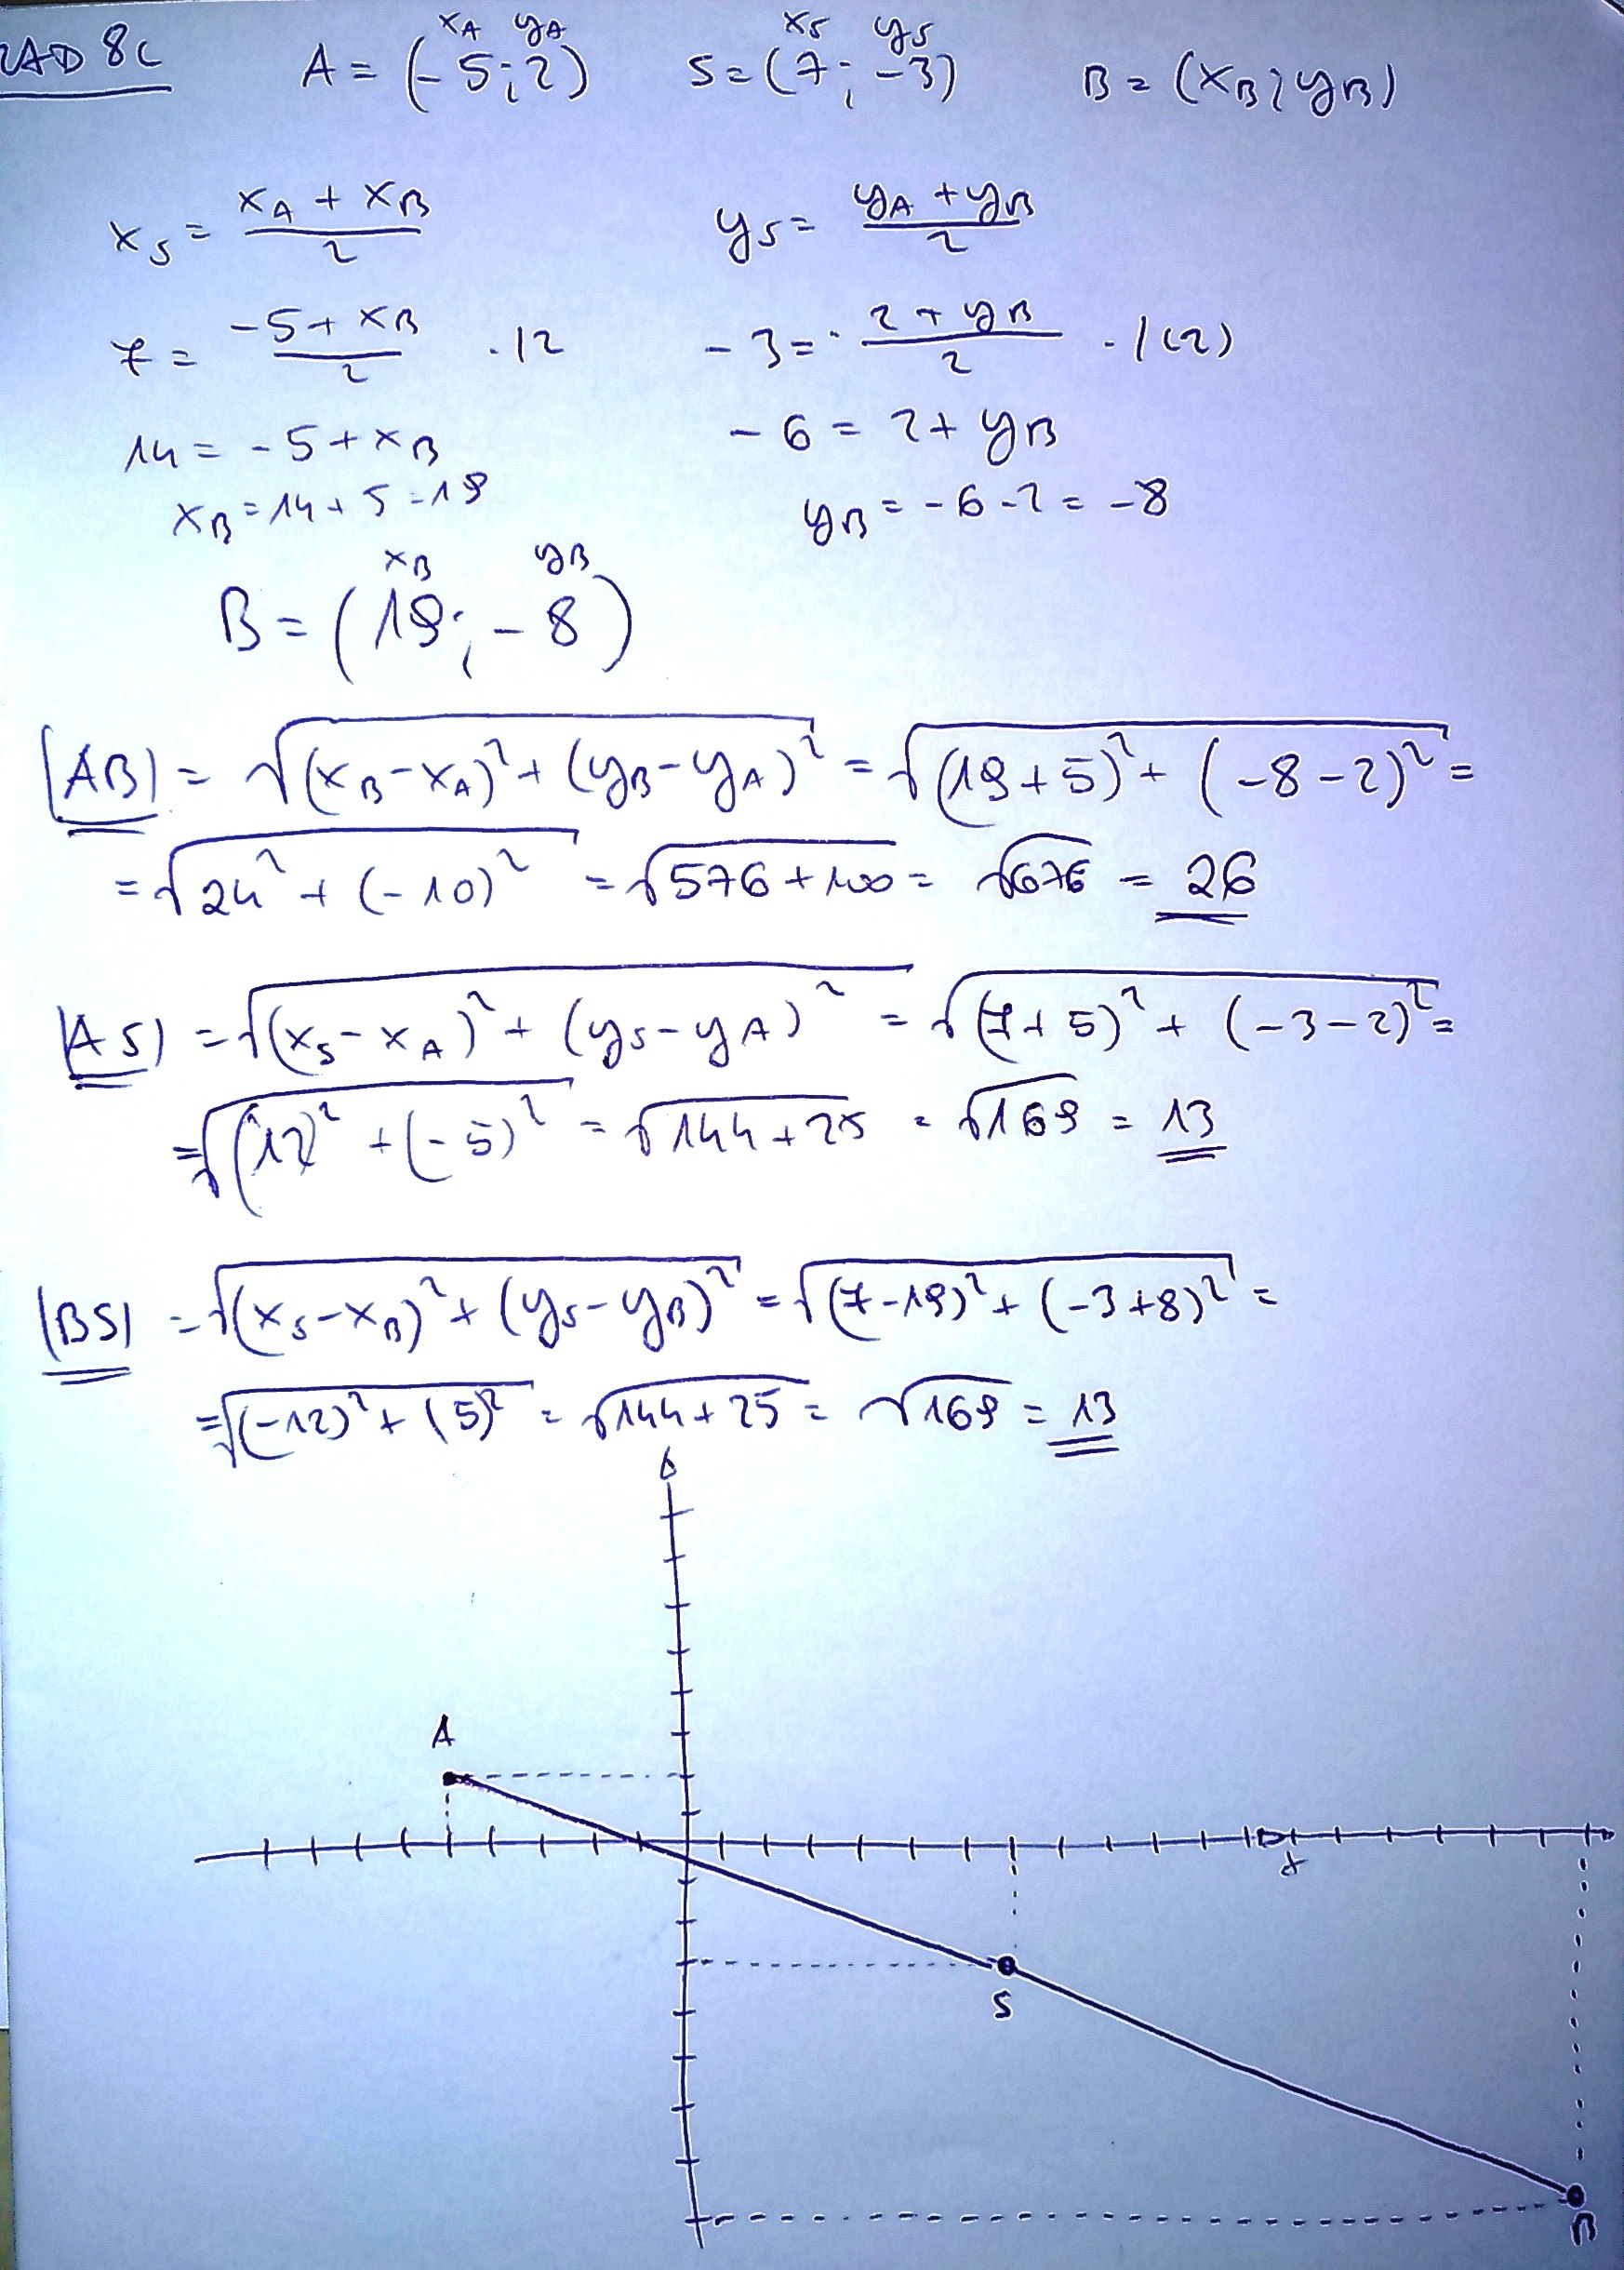 ZAD 8c A = (-5; 2) S = (7; -3) B = (xB; yB)
xA yA xS yS
xS = (xA + xB)/2 yS = (yA + yB)/2
7 = (-5 + xB)/2 ·|2 -3 = (2 + yB)/2 ·|(2)
14 = -5 + xB -6 = 2 + yB
xB = 14 + 5 = 19 yB = -6 - 2 = -8
xB yB
B = (19; -8)
|AB| = √((xB - xA)² + (yB - yA)²) = √((19 + 5)² + (-8 - 2)²) =
= √(24² + (-10)²) = √(576 + 100) = √676 = 26
|AS| = √((xS - xA)² + (yS - yA)²) = √((7 + 5)² + (-3 - 2)²) =
= √((12)² + (-5)²) = √(144 + 25) = √169 = 13
|BS| = √((xS - xB)² + (yS - yB)²) = √((7 - 19)² + (-3 + 8)²) =
= √((-12)² + (5)²) = √(144 + 25) = √169 = 13
A
x
S
B